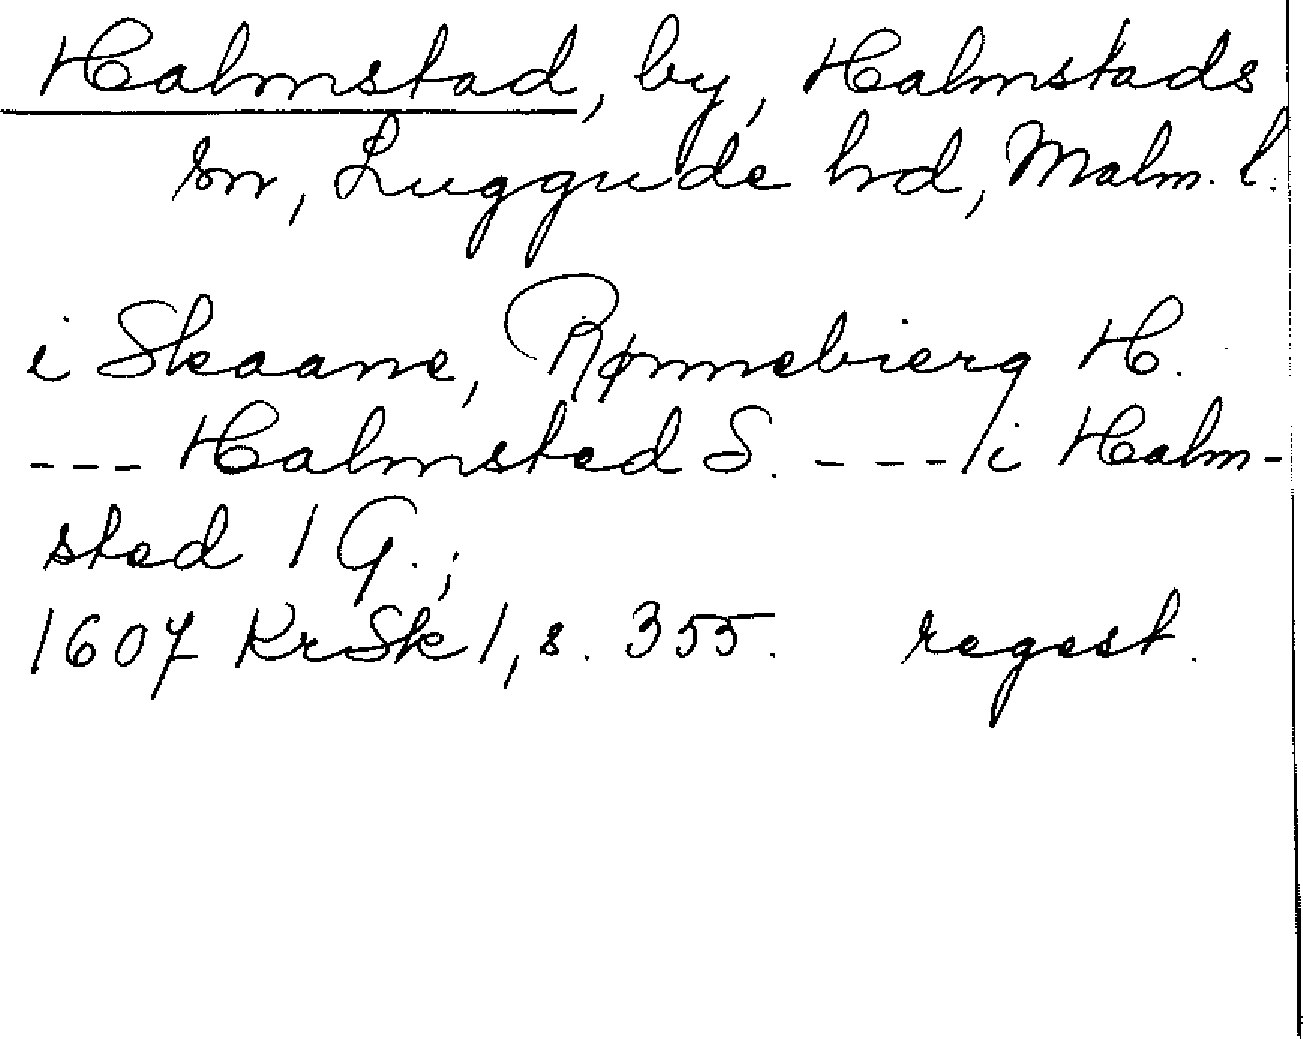 Halmstad, by, Halmstads
sn, Luggude hd, Malm. l.
i Skaane, Rønnebierg H.
--- Halmsted S. --- /i Halm-
sted 1 G.;
1607 KrSk 1, s. 355. regest.